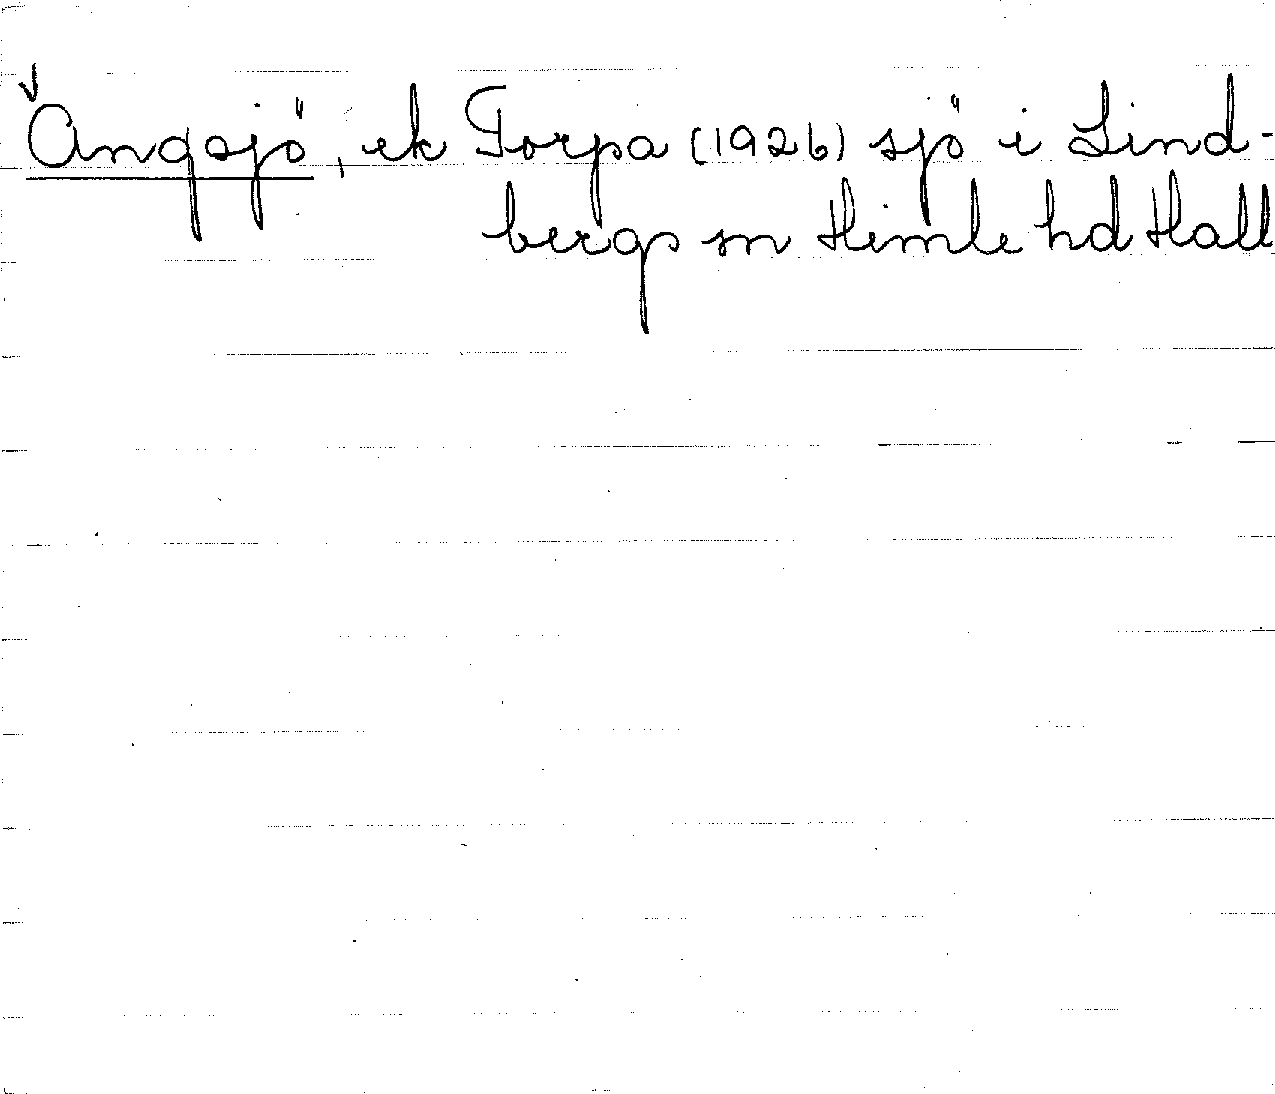 Angsjö, ek Torpa (1926) sjö i Lind-
bergs sn Himle hd Hall